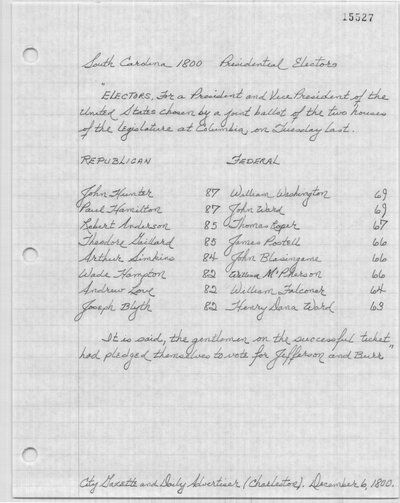 15527
South Carolina 1800 Presidential Electors
"ELECTORS, For a President and Vice President of the
United States chosen by a joint ballot of the two houses
of the legislature at Columbia, on Tuesday last.
REPUBLICAN FEDERAL
John Hunter 87 William Washington 69
Paul Hamilton 87 John Ward 69
Robert Anderson 85 Thomas Roper 67
Theodore Gaillard 85 James Postell 66
Arthur Simkins 84 John Blasingame 66
Wade Hampton 82 William McPherson 66
Andrew Love 82 William Falconer 64
Joseph Blyth 82 Henry Dana Ward 63
It is said, the gentlemen on the successful ticket
had pledged themselves to vote for Jefferson and Burr"
City Gazette and Daily Advertiser (Charleston). December 6, 1800.